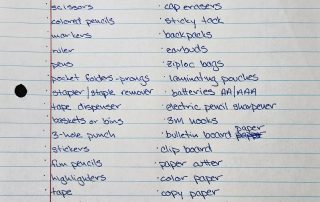 scissors
colored pencils
markers
ruler
pens
pocket folders-prongs
stapler/staple remover
tape dispenser
baskets or bins
3-hole punch
stickers
fun pencils
highlighters
tape
· cap erasers
· sticky tack
· backpacks
· earbuds
· ziploc bags
· laminating pouches
· batteries AA/AAA
· electric pencil sharpener
· 3M hooks
· bulletin board paper
· clip board
· paper cutter
· color paper
· copy paper